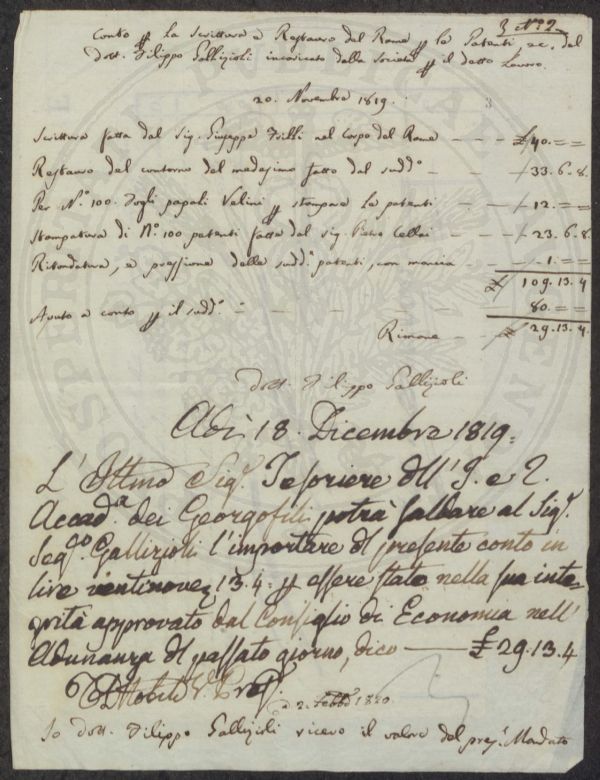 3 N.º 2
Conto p la Scrittura e Restauro del Rame p le Patenti, ec. del
dott. Filippo Gallizioli incaricato dalla Società p il detto Lavoro.
20. Novembre 1819.
3
Scrittura fatta dal Sig. Giuseppe Filli nel Corpo del Rame — — £ 40. = =
Restauro del contorno del medesimo fatto dal sudd.º — — 33. 6. 8.
Per N.º 100. fogli papali Velini p stampare le patenti — — 12. = =
Stampatura di N.º 100 patenti fatta dal Sig. Pietro Cellai — — 23. 6. 8
Ritondatura, e pressione delle sudd.e patenti, con mancia — — 1. = =
£ 109. 13. 4
Avuto a conto p il sudd.º — — 80. = =
Rimane — — £ 29. 13. 4.
Dott. Filippo Gallizioli
Adì 18. Dicembre 1819.
L'Ill.mo Sig.r Tesoriere dell'I. e R.
Accad.a dei Georgofili potrà saldare al Sig.r
Seg.rio Gallizioli l'importare del presente conto in
lire ventinove, 13. 4. p essere stato nella sua inte-
grità approvato dal Consiglio di Economia nell'
Adunanza del passato giorno, dico — £ 29. 13. 4
a 2. Febb.o 1820.
Io dott. Filippo Gallizioli ricevo il valore del pres.e Mandato
PROSPERITÀ PUBBLICA